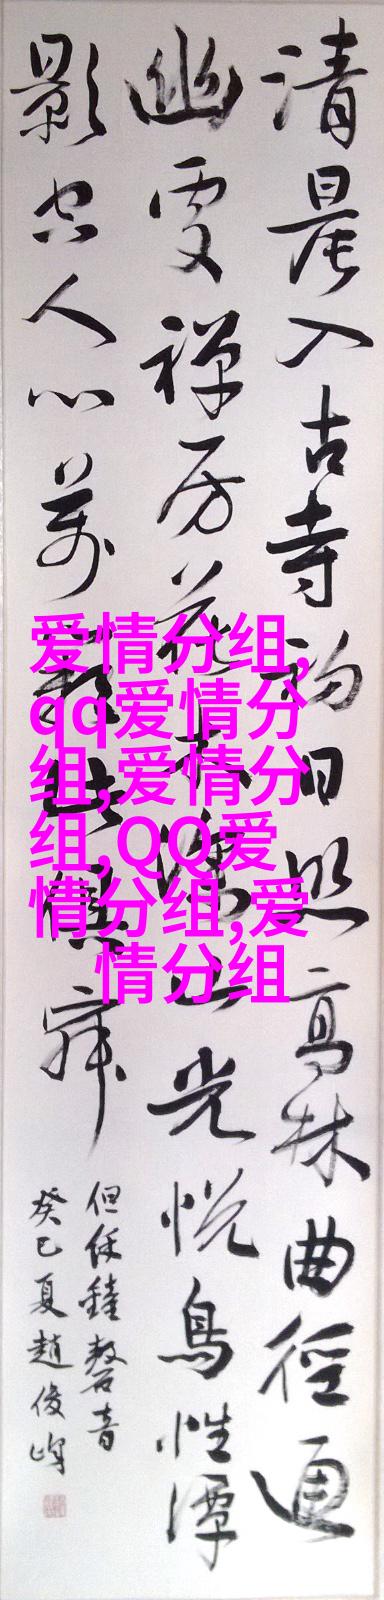 清晨入古寺初日照高林曲徑通
幽處禅房花木深山光悦鳥性潭
影空人心萬籟此俱寂
但餘鐘磬音
癸巳夏趙俊峰
爱情分组,
qq爱情分
组,爱情分
组,QQ爱
情分组,爱
情分组